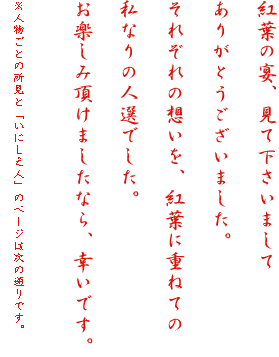 紅葉の宴、見て下さいまして
ありがとうございました。
それぞれの想いを、紅葉に重ねての
私なりの人選でした。
お楽しみ頂けましたなら、幸いです。
※人物ごとの所見と「いにしえ人」のページは次の通りです。